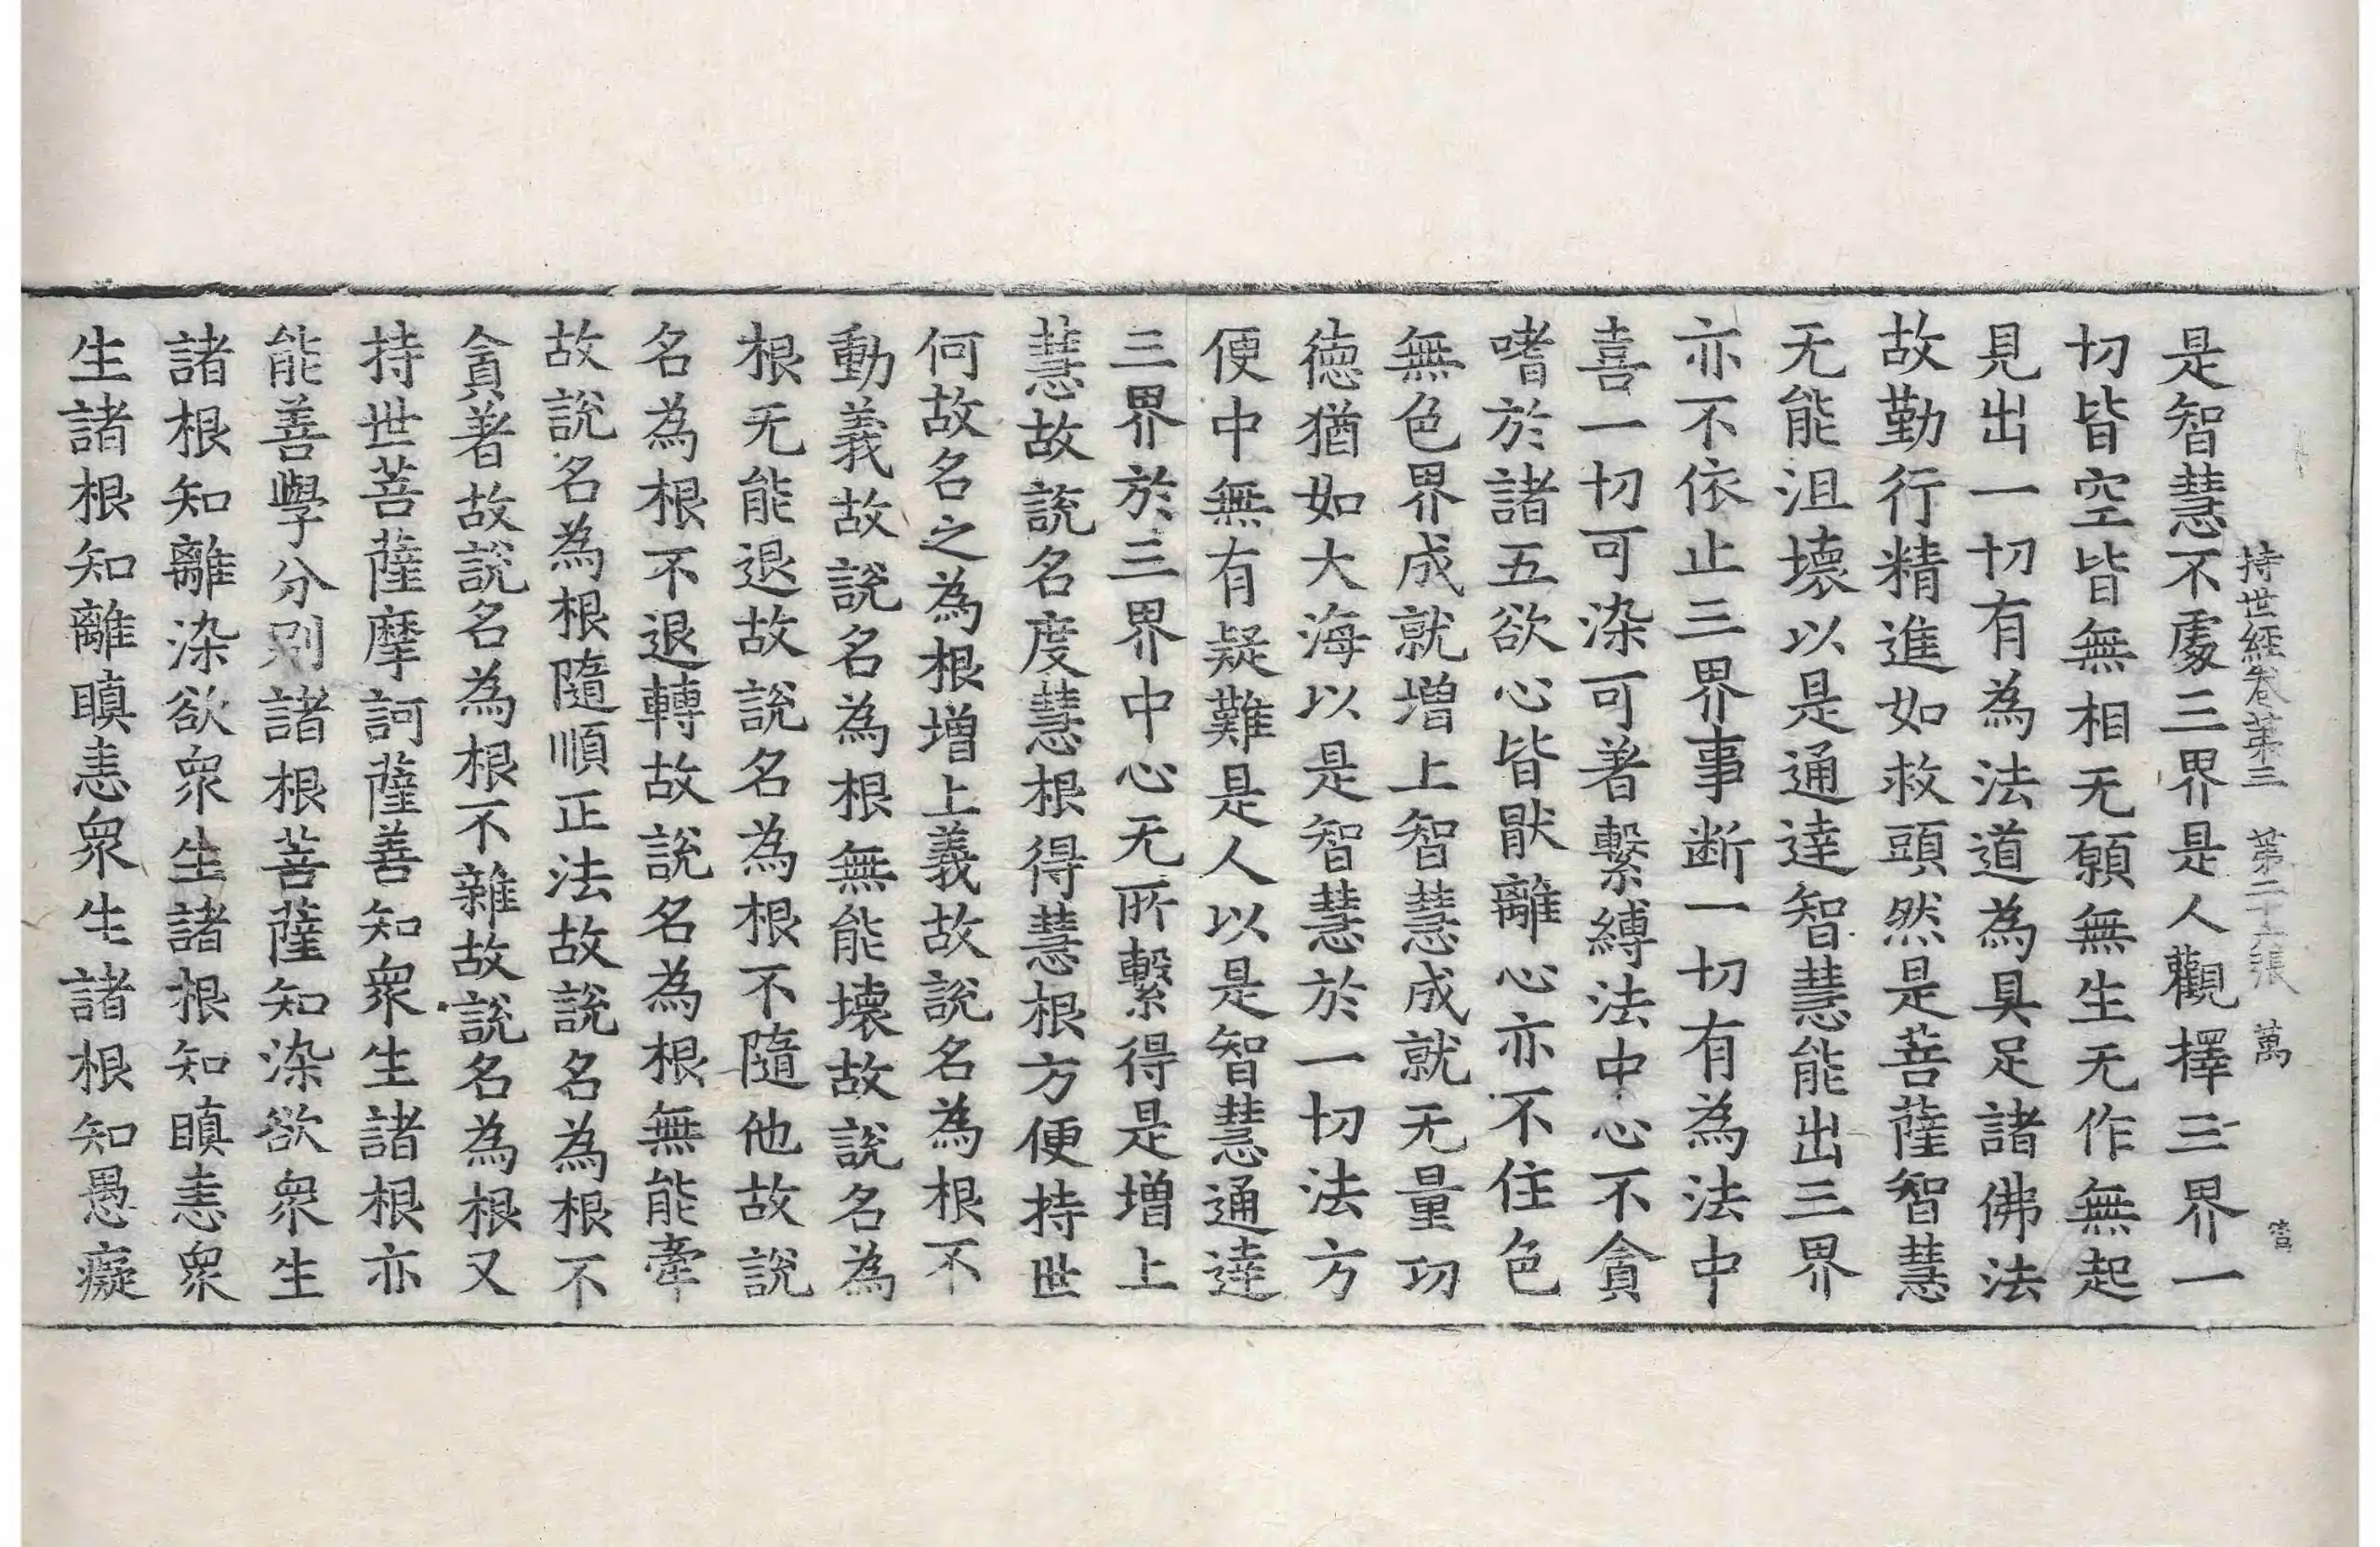 持世經卷苐三　苐二十張　萬
是智慧不處三界是人觀擇三界一
切皆空皆無相无願無生无作無起
見出一切有為法道為具足諸佛法
故勤行精進如救頭然是菩薩智慧
无能沮壞以是通達智慧能出三界
亦不依止三界事断一切有為法中
喜一切可染可著繫縛法中心不貪
嗜於諸五欲心皆猒離心亦不住色
無色界成就增上智慧成就无量功
德猶如大海以是智慧於一切法方
便中無有疑難是人以是智慧通達
三界於三界中心无所繫得是增上
慧故說名度慧根得慧根方便持世
何故名之為根增上義故說名為根不
動義故說名為根無能壞故說名為
根无能退故說名為根不隨他故說
名為根不退轉故說名為根無能牽
故說名為根隨順正法故說名為根不
貪著故說名為根不雜故說名為根又
持世菩薩摩訶薩善知衆生諸根亦
能善學分別諸根菩薩知染欲衆生
諸根知離染欲衆生諸根知瞋恚衆
生諸根知離瞋恚衆生諸根知愚癡